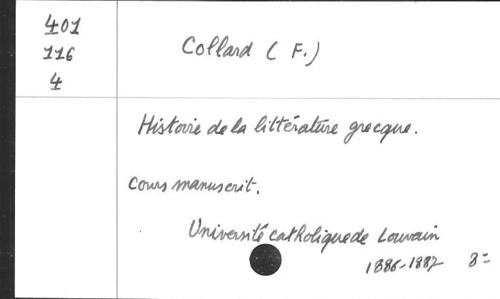 401
116
4
Collard ( F.)
Histoire de la littérature grecque.
Cours manuscrit.
Université catholique de Louvain
1886-1887 8=